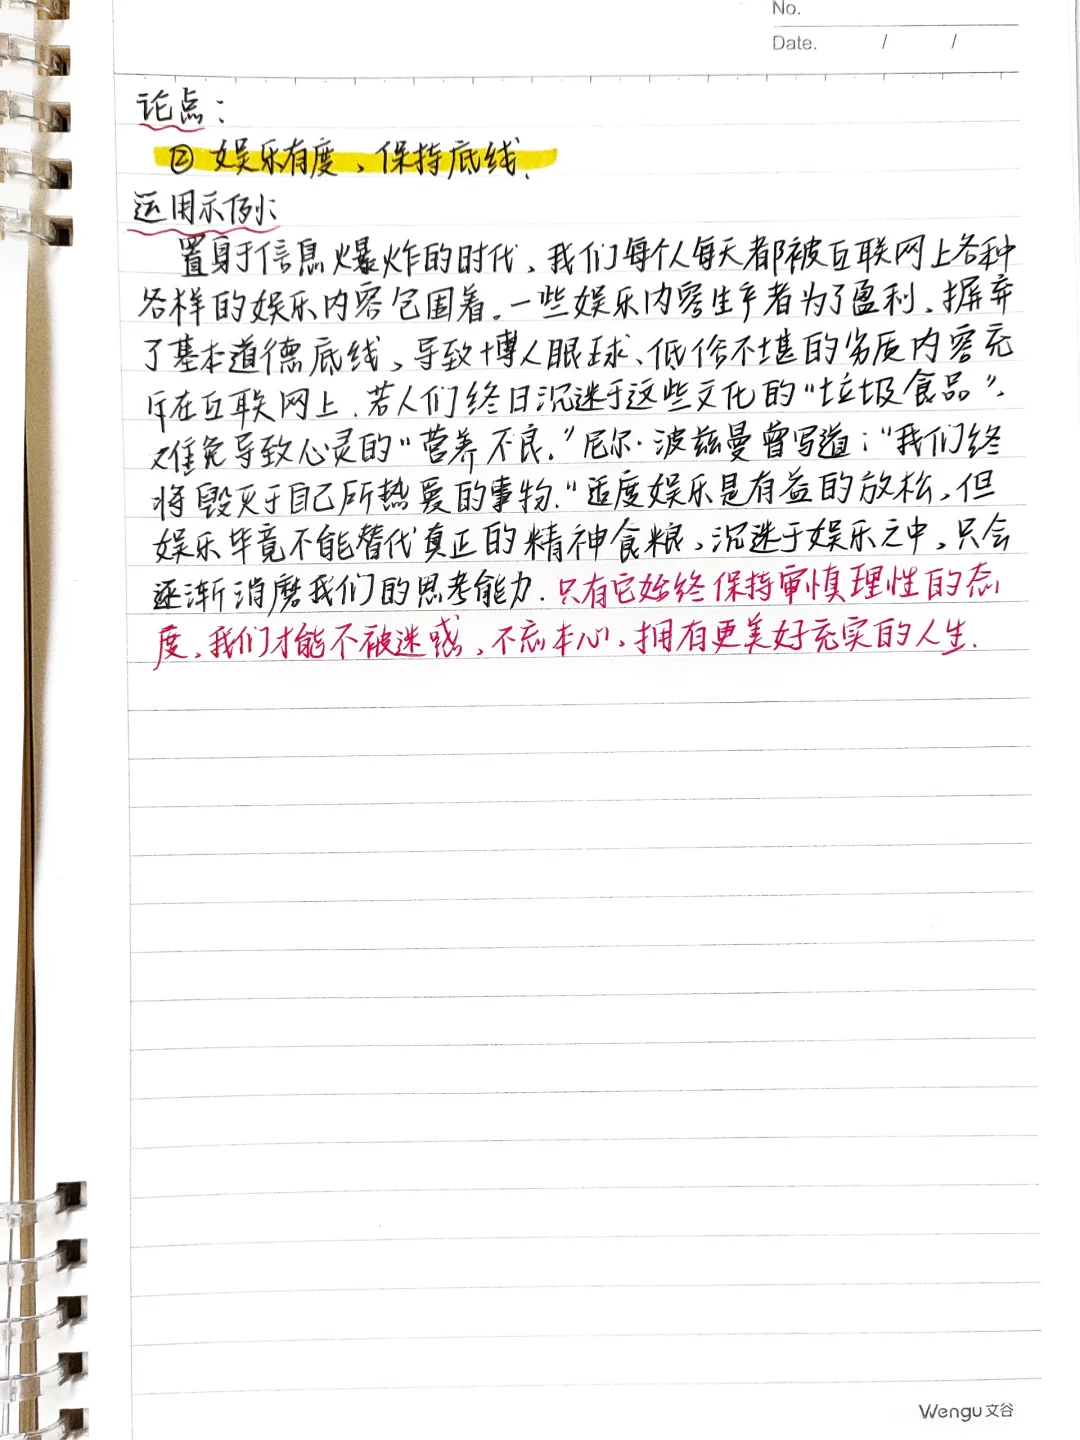 No.
Date. / /
论点：
② 娱乐有度、保持底线.
运用示例：
置身于信息爆炸的时代，我们每个人每天都被互联网上各种
各样的娱乐内容包围着。一些娱乐内容生产者为了盈利，摒弃
了基本道德底线，导致博人眼球、低俗不堪的劣质内容充
斥在互联网上.若人们终日沉迷于这些文化的“垃圾食品”，
难免导致心灵的“营养不良。”尼尔·波兹曼曾写道：“我们终
将毁灭于自己所热爱的事物.”适度娱乐是有益的放松，但
娱乐毕竟不能替代真正的精神食粮，沉迷于娱乐之中，只会
逐渐消磨我们的思考能力.只有它始终保持审慎理性的态
度，我们才能不被迷惑，不忘本心，拥有更美好充实的人生.
Wengu 文谷